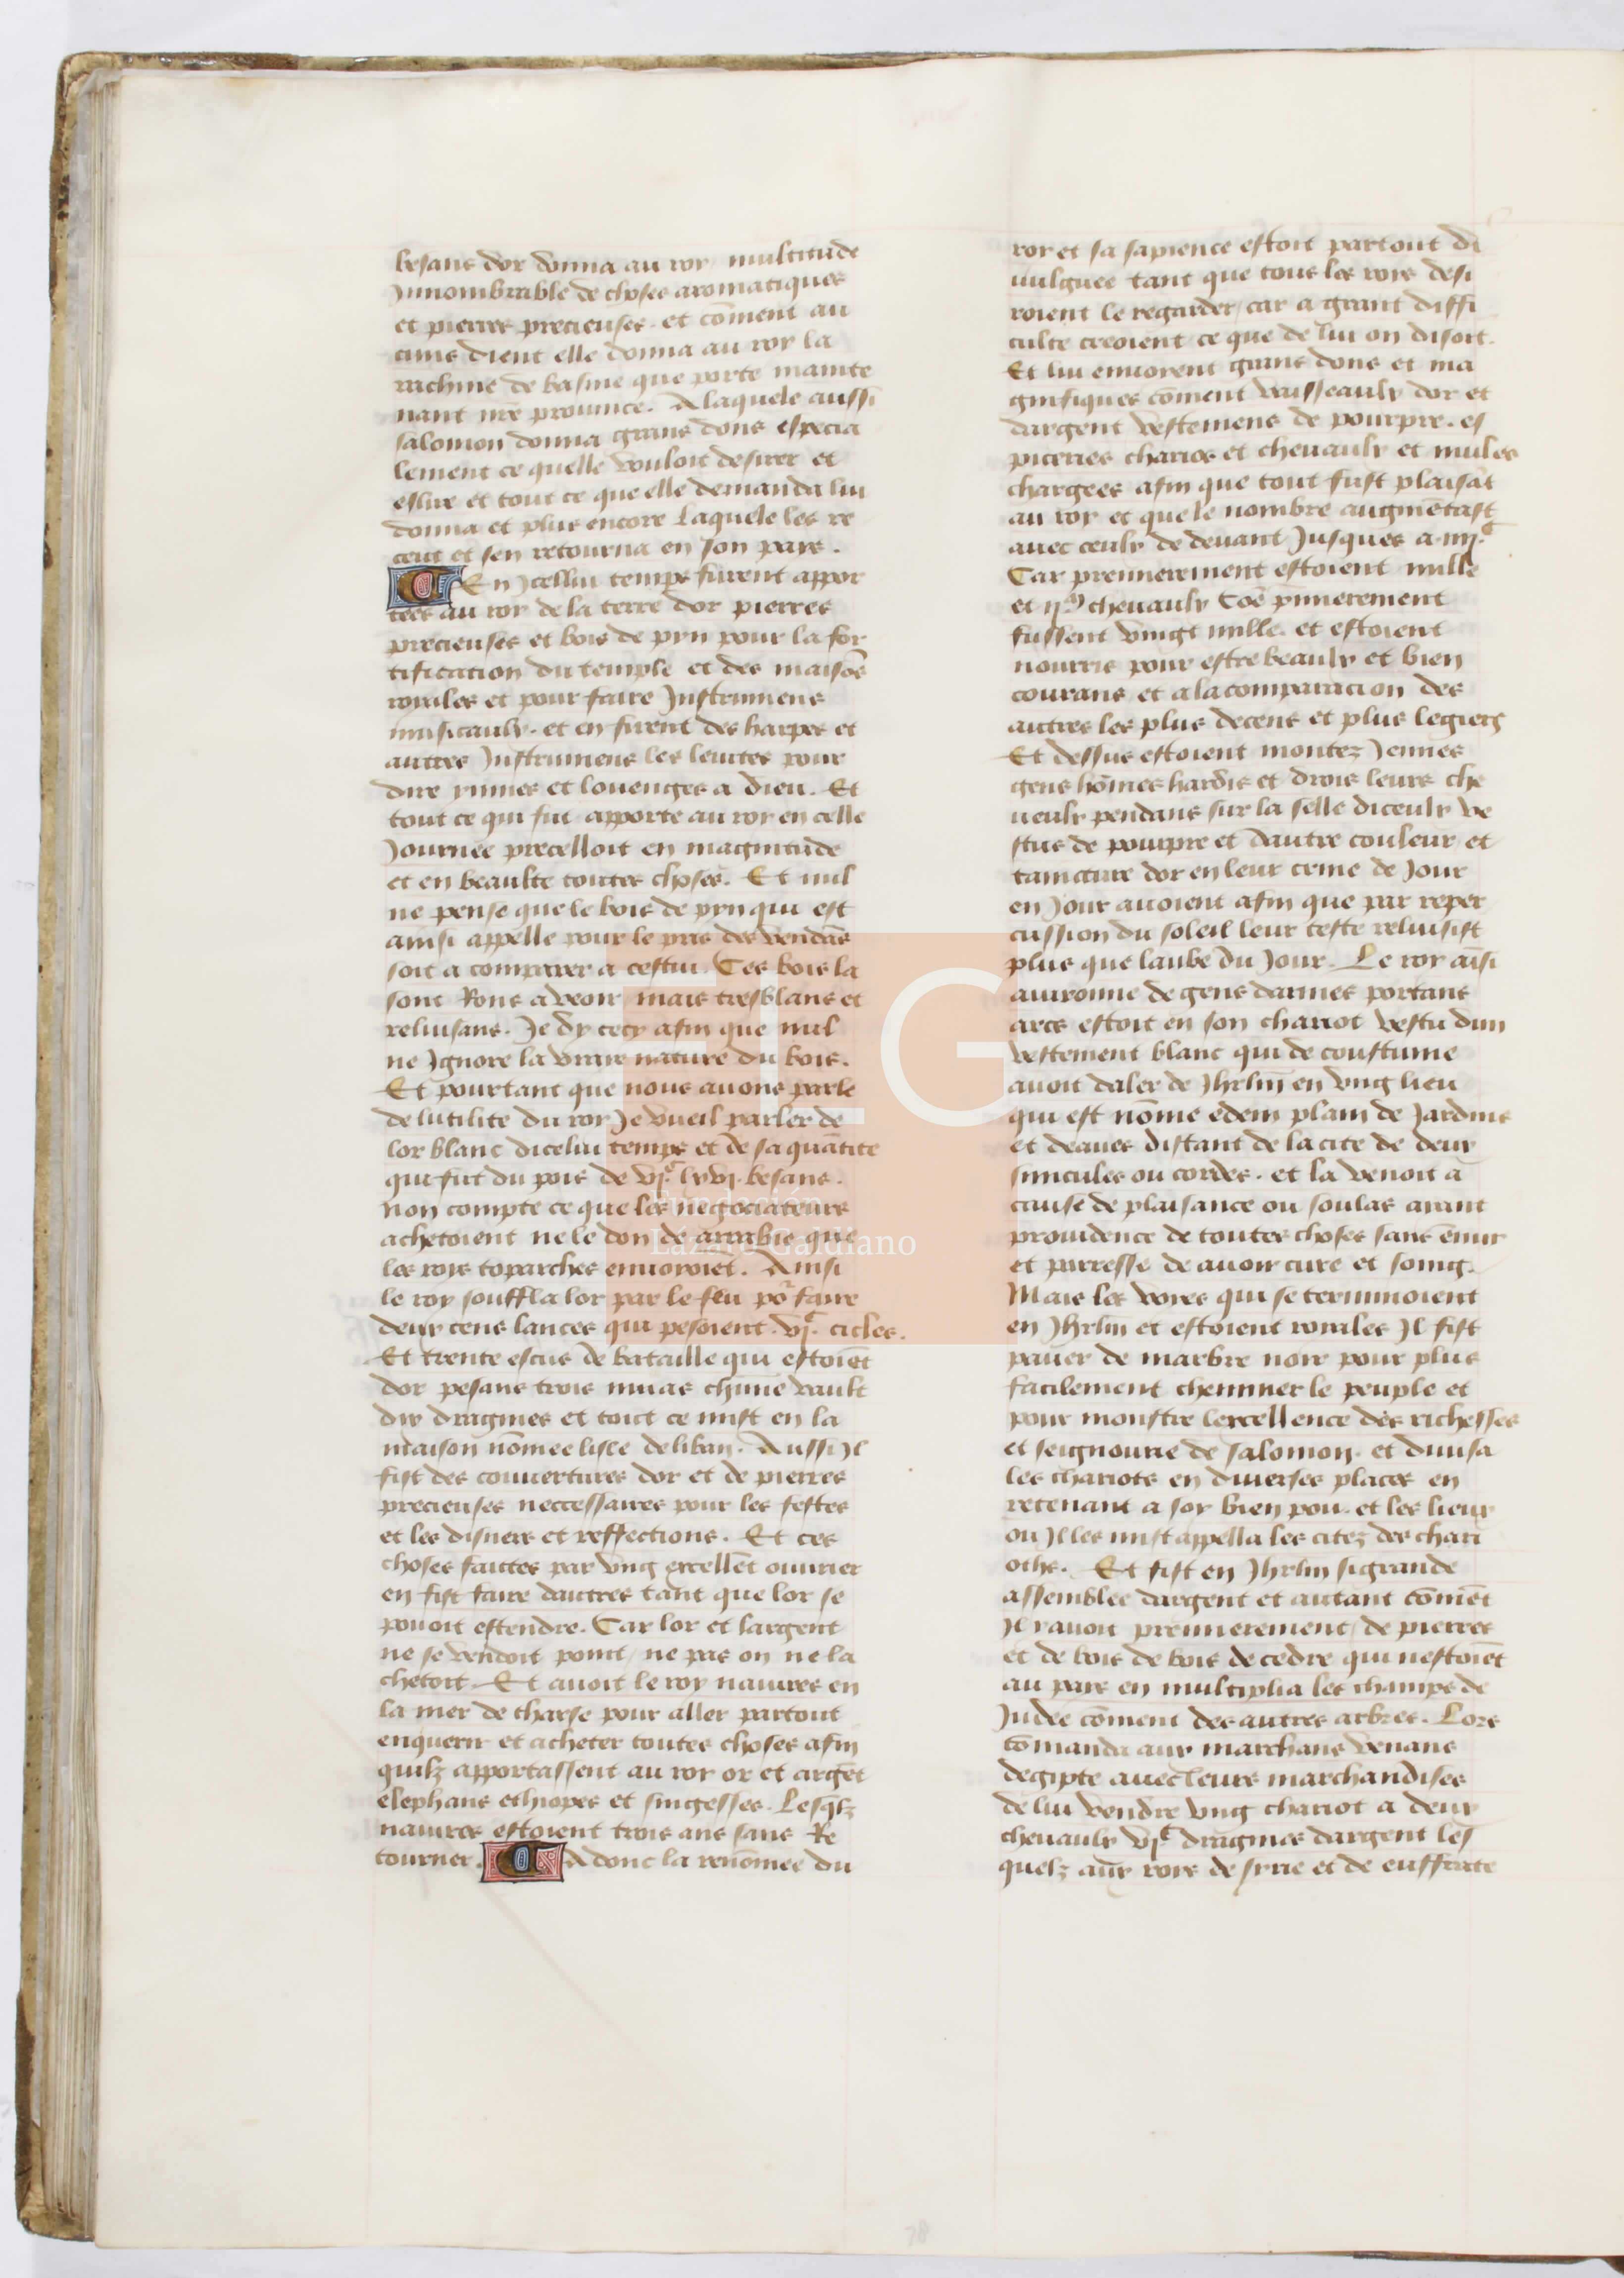 besans dor donna au roy multitude
Innombrable de choses aromatiques
et pierres precieuses. et cōment au
cuns dient elle donna au roy la
rachine de basme que porte mainte
nant nr̄e prouince. A laquele aussi
salomon donna grans dons especia
lement ce quelle vouloit desirer et
eslire et tout ce que elle demanda lui
donna et plus encore laquele les re
ceut et sen retourna en son pays.
En Jcellui temps furent appor
tees au roy de la terre dor pierres
precieuses et bois de pyn pour la for
tification du temple et des maisōs
royales et pour faire Instrumens
musicaulx. et en firent des harpes et
autres Instrumens les leuites pour
dire ymnes et louenges a dieu. Et
tout ce qui fut apporte au roy en celle
Journee precelloit en magnitude
et en beaulte toutes choses. Et nul
ne pense que le bois de pyn qui est
ainsi appelle pour le pris des vendās
soit a comparer a cestui. Ces bois la
sont Rons a veoir mais tresblans et
reluisans. Je dy cecy afin que nul
ne Ignore la vraie nature du bois.
Et pourtant que nous auons parle
de lutilite du roy Je vueil parler de
lor blanc dicelui temps et de sa quātite
qui fut du pois de vjᶜ lxvj. besans.
non compte ce que les negociateurs
achetoient ne le don de arrabie que
les roys toparches enuoyoiēt. Ainsi
le roy souffla lor par le feu po᷑ faire
deux cens lances qui pesoient. vjᶜ. cicles.
Et trente escus de bataille qui estoiēt
dor pesans trois mnas chūne vault
dix dragmes et tout ce mist en la
maison nōmee lisle de liban. Aussi Jl
fist des couuertures dor et de pierres
precieuses neccessaires pour les festes
et les disners et reffections. Et ces
choses faictes par vng excellēt ouurier
en fist faire dautres tant que lor se
pouoit estendre. Car lor et largent
ne se vendoit point / ne pas on ne la
chetoit. Et auoit le roy nauires en
la mer de tharse pour aller partout
enquerir et acheter toutes choses afin
quilz apportassent au roy or et argēt
elephans ethiopes et singesses. Lesq̄lz
nauires estoient trois ans sans Re
tourner. Adonc la renōmee du
roy et sa sapience estoit partout di
uulguee tant que tous les roys desi
roient le regarder / car a grant diffi
culte creoient ce que de lui on disoit.
Et lui enuoient grans dons et ma
gnifiques cōment vaisseaulx dor et
dargent vestemens de pourpre. es
piceries charios et cheuaulx et mules
chargees afin que tout fust plaisāt
au roy et que le nombre augmētast
auec ceulx de deuant Jusques a. iiijᶜ
Car premierement estoient mille
et ijᶜ cheuaulx Cōe pmierement
fussent vingt mille. et estoient
nourris pour estre beaulx et bien
courans et a la comparacion des
autres les plus decens et plus legiers
Et dessus estoient montez Jennes
gens hōmes hardis et drois leurs che
ueulx pendans sur la selle diceulx ve
stus de pourpre et dautre couleur et
taincture dor en leur crine de Jour
en Jour auoient afin que par reper
cussion du soleil leur teste reluisist
plus que laube du Jour. Le roy aīsi
auironne de gens darmes portans
arcs estoit en son chariot vestu dun
vestement blanc qui de coustume
auoit daler de Jhrl̄m en vng lieu
qui est nōme edem plain de Jardins
et deaues distant de la cite de deux
sincules ou cordes. et la venoit a
cause de plaisance ou soulas ayant
prouidence de toutes choses sans ēnuy
et parresse de auoir cure et soing.
Mais les voyes qui se terminoient
en Jhrl̄m et estoient royales Jl fist
pauer de marbre noir pour plus
facilement cheminer le peuple et
pour monstre lexcellence des richesses
et seignourie de salomon. et diuisa
les chariots en diuerses places en
retenant a soy bien pou. et les lieux
ou Jl les mist appella les citez des chari
oths. Et fist en Jhrl̄m si grande
assemblee dargent et autant cōmēt
Jl y auoit premierement / de pierres
et de bois de bois de cedre qui nestoiēt
au pays en multiplia les champs de
Judee cōment des autres arbres. Lors
cōmanda aux marchans venans
degipte auec leurs marchandises
de lui vendre vng chariot a deux
cheuaulx vjᶜ dragmes dargent les
quelz aux roys de syrie et de euffrate
FLG
Fundación
Lázaro Galdiano